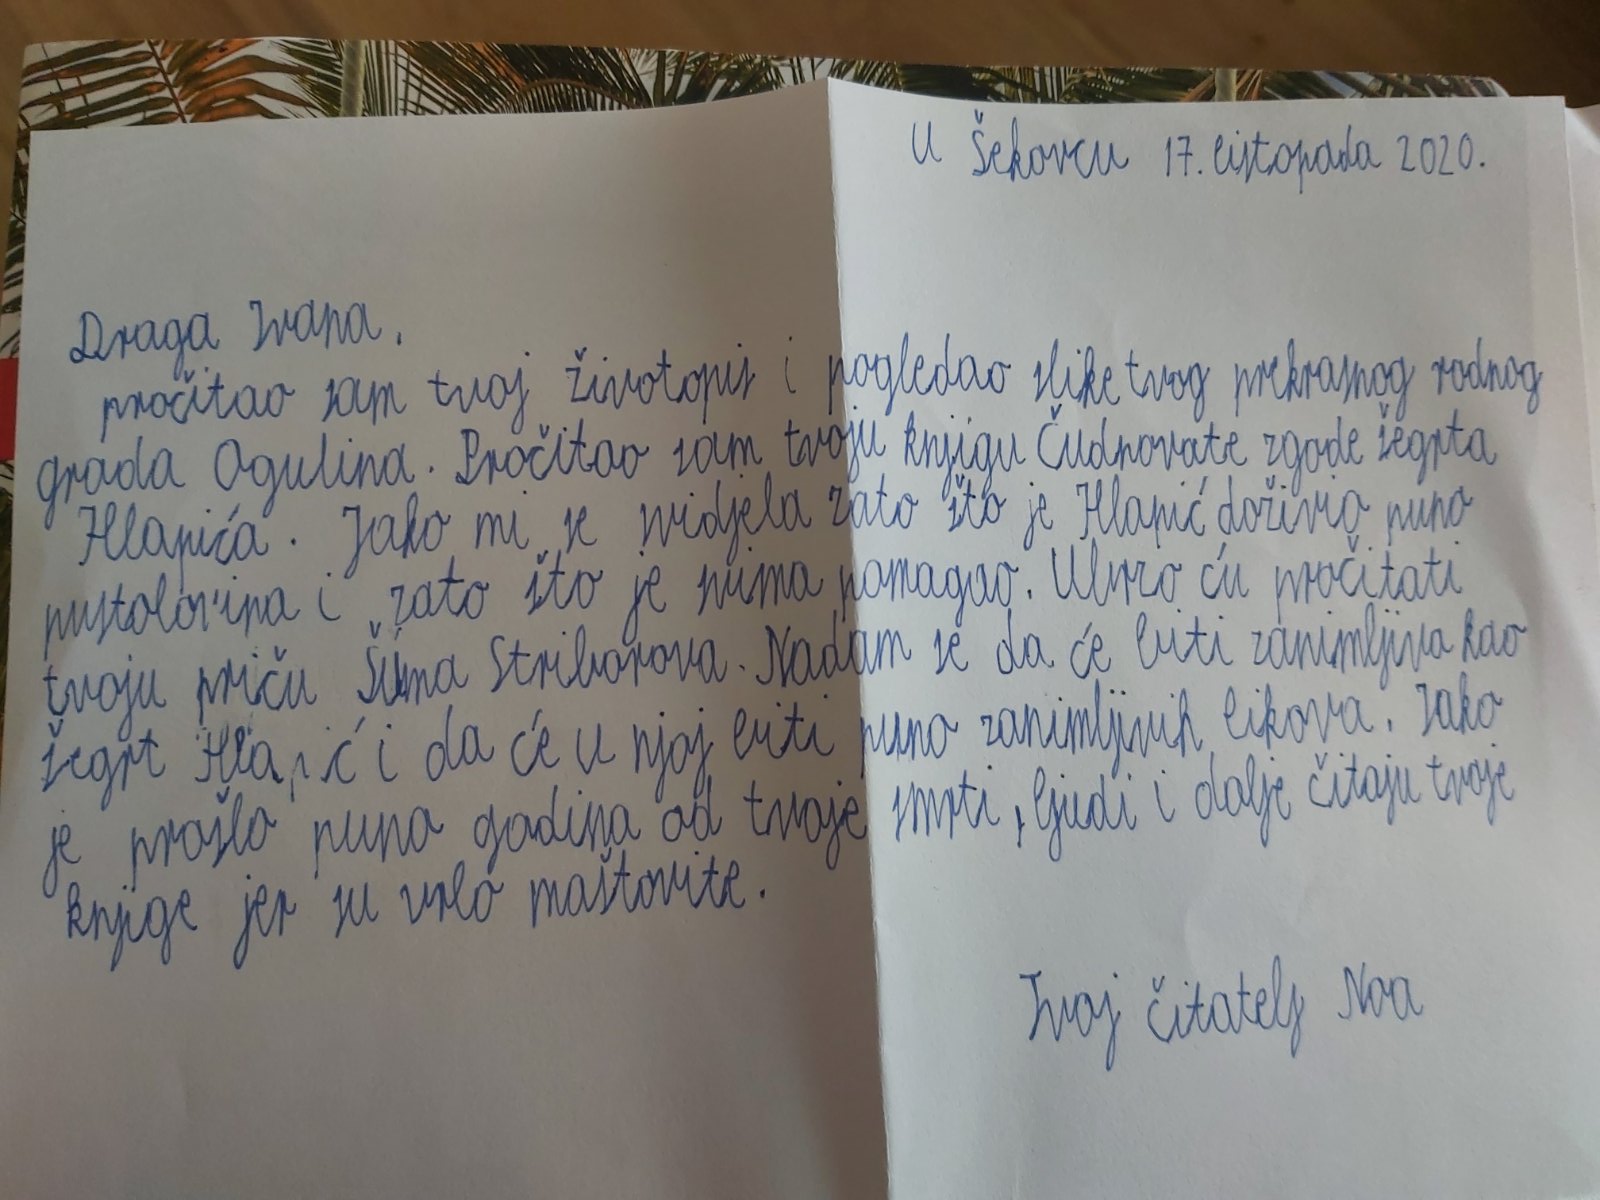 U Šekovcu 17. listopada 2020.
Draga Ivana,
pročitao sam tvoj životopis i pogledao slike tvog prekrasnog rodnog
grada Ogulina. Pročitao sam tvoju knjigu Čudnovate zgode šegrta
Hlapića. Jako mi se svidjela zato što je Hlapić doživio puno
pustolovina i zato što je svima pomagao. Ubrzo ću pročitati
tvoju priču Šuma Striborova. Nadam se da će biti zanimljiva kao
šegrt Hlapić i da će u njoj biti puno zanimljivih likova. Iako
je prošlo puno godina od tvoje smrti, ljudi i dalje čitaju tvoje
knjige jer su vrlo maštovite.
Tvoj čitatelj Noa